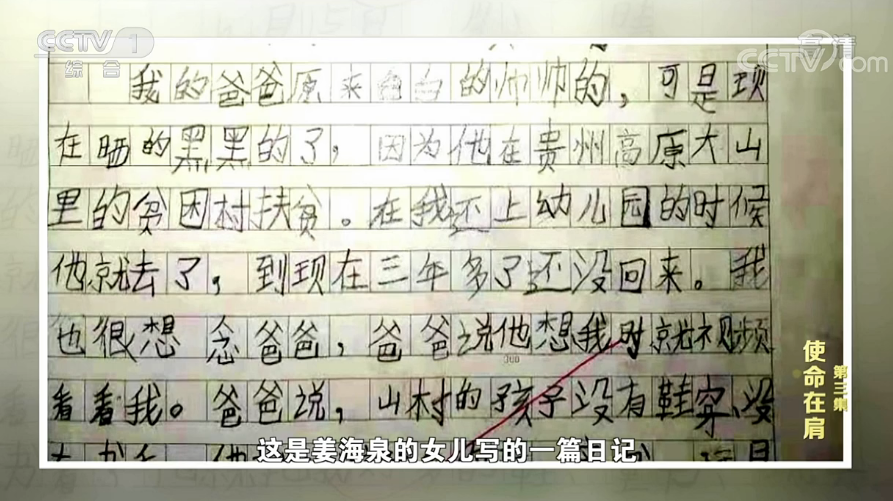 CCTV 1
综合
高清
CCTV.com
我的爸爸原来白白的帅帅的，可是现
在晒的黑黑的了，因为他在贵州高原大山
里的贫困村扶贫。在我还上幼儿园的时候
他就去了，到现在三年多了还没回来。我
也很想念爸爸，爸爸说他想我时就视频
300
看看我。爸爸说，山村的孩子没有鞋穿、没
使命在肩
第三集
这是姜海泉的女儿写的一篇日记